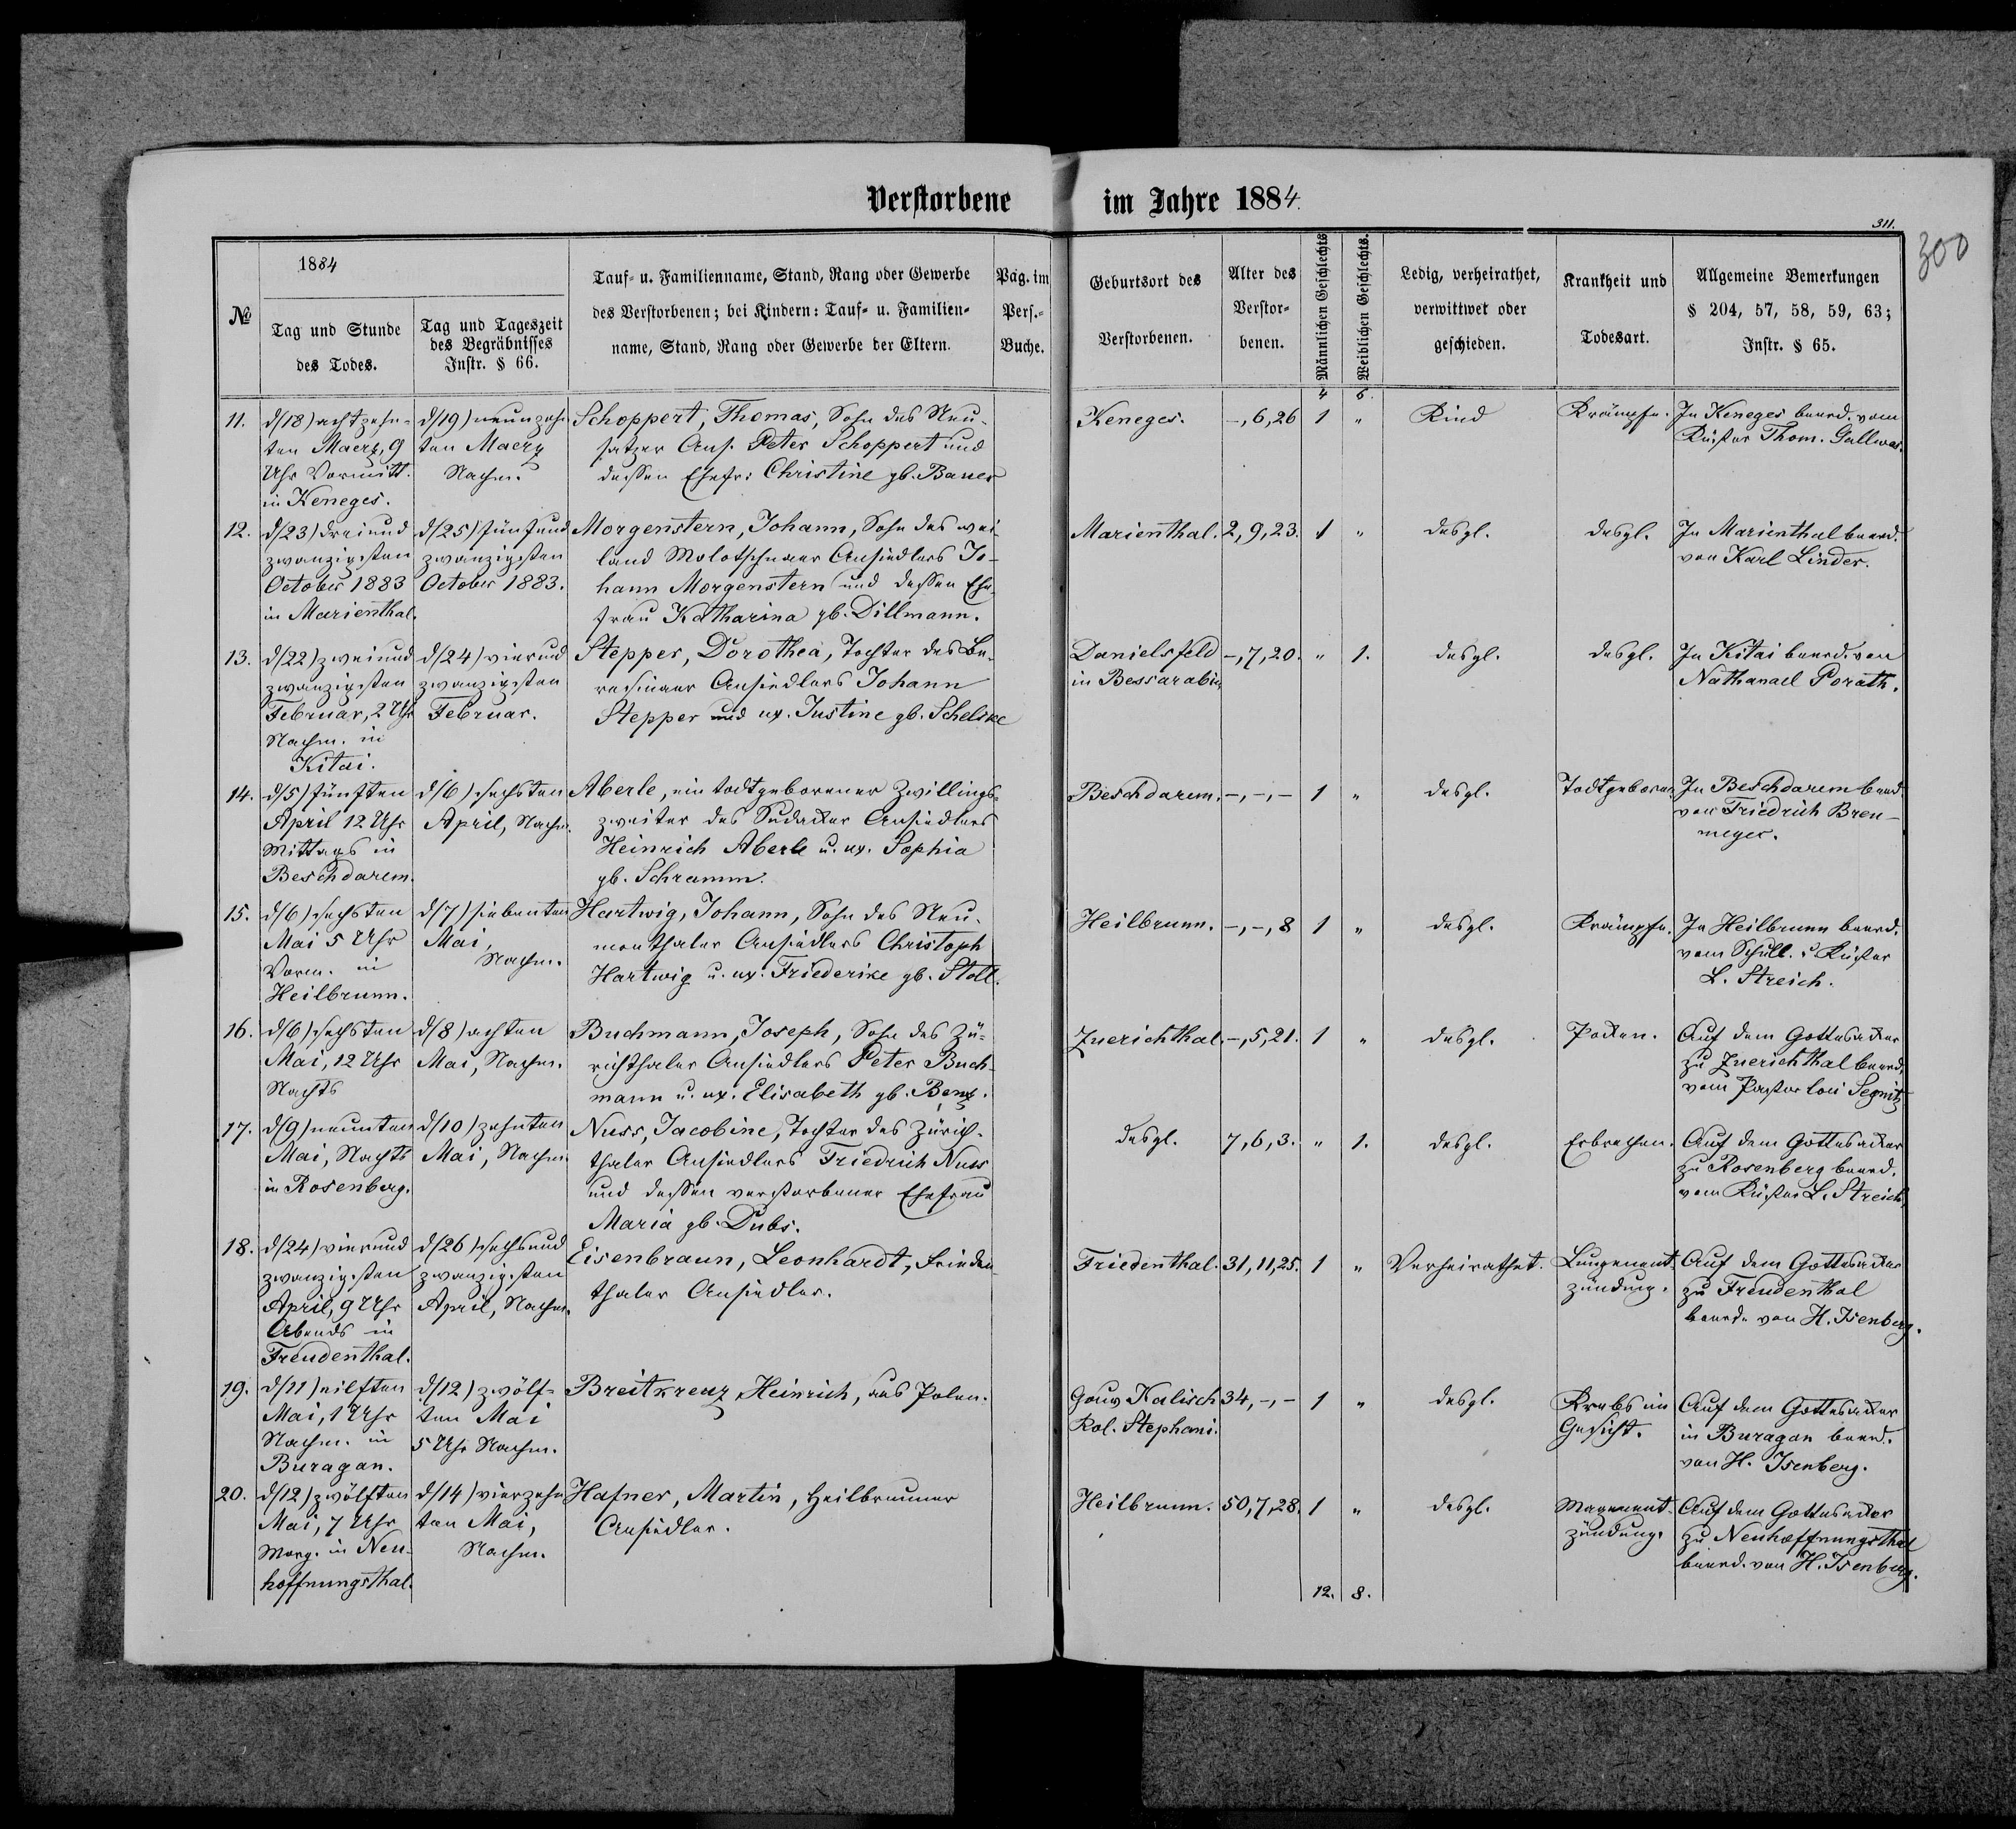 Verstorbene im Jahre 1884.
311.
300
№
1884
Tag und Stunde
des Todes.
Tag und Tageszeit
des Begräbnisses
Instr. § 66.
Tauf- u. Familienname, Stand, Rang oder Gewerbe
des Verstorbenen; bei Kindern: Tauf- u. Familien-
name, Stand, Rang oder Gewerbe der Eltern.
Pag. im
Pers.-
Buche.
Geburtsort des
Verstorbenen.
Alter des
Verstor-
benen.
Männlichen Geschlechts
Weiblichen Geschlechts.
Ledig, verheirathet,
verwittwet oder
geschieden.
Krankheit und
Todesart.
Allgemeine Bemerkungen
§ 204, 57, 58, 59, 63;
Instr. § 65.
11.
d/18) achtzehn-
ten Maerz, 9
Uhr Vormitt.
in Keneges.
d/19) neunzehn
ten Maerz
Nachm.
Schoppert, Thomas, Sohn des Neu-
satzer Ans. Peter Schoppert und
dessen Ehefr: Christine gb. Bauer
Keneges.
-, 6, 26
1
"
Kind
Krämpfe.
In Keneges beerd. vom
Küster Thom. Gallwas.
12.
d/23) dreiund
zwanzigsten
October 1883
in Marienthal.
d/25) fünfund
zwanzigsten
October 1883.
Morgenstern, Johann, Sohn des wei-
land Molotschnaer Ansiedlers Jo-
hann Morgenstern und dessen Ehe-
frau Katharina gb. Dillmann.
Marienthal.
2, 9, 23.
1
"
desgl.
desgl.
In Marienthal beerd.
von Karl Linder.
13.
d/22) zweiund
zwanzigsten
Februar, 2 Uhr
Nachm. in
Kitai.
d/24) vierund
zwanzigsten
Februar.
Stepper, Dorothea, Tochter des Be-
resinaer Ansiedlers Johann
Stepper und ux. Justine gb. Schelske
Danielsfeld
in Bessarabien
-, 7, 20.
"
1.
desgl.
desgl.
In Kitai beerd. von
Nathanael Porath.
14.
d/5) fünften
April 12 Uhr
Mittags in
Beschdarem.
d/6) sechsten
April, Nachm.
Aberle, ein todtgeborener Zwillings-
zweiter des Sudaker Ansiedlers
Heinrich Aberle u. ux. Sophia
gb. Schramm.
Beschdarem.
-, -, -
1
"
desgl.
Todtgeboren.
In Beschdarem beerd
von Friedrich Bren-
meyer.
15.
d/6) sechsten
Mai 5 Uhr
Vorm. in
Heilbrunn.
d/7) siebenten
Mai,
Nachm.
Hartwig, Johann, Sohn des Neu-
monthaler Ansiedlers Christoph
Hartwig u. ux. Friederike gb. Stoll.
Heilbrunn.
-, -, 8
1
"
desgl.
Krämpfe.
In Heilbrunn beerd.
vom Schull. u Küster
L. Streich.
16.
d/6) sechsten
Mai, 12 Uhr
Nachts
d/8) achten
Mai, Nachm.
Buchmann, Joseph, Sohn des Zü-
richthaler Ansiedlers Peter Buch-
mann u. ux. Elisabeth gb. Benz.
Zuerichthal.
-, 5, 21.
1
"
desgl.
Pocken.
Auf dem Gottesacker
zu Zuerichthal beerd.
vom Pastor loci Segnitz
17.
d/9) neunten
Mai, Nachts
in Rosenberg.
d/10) zehnten
Mai, Nachm.
Nuss, Jacobine, Tochter des Zürich-
thaler Ansiedlers Friedrich Nuss
und dessen verstorbener Ehefrau
Maria gb. Dubs.
desgl.
7, 6, 3.
"
1.
desgl.
Erbrechen.
Auf dem Gottesacker
zu Rosenberg beerd.
vom Küster L. Streich.
18.
d/24) vierund
zwanzigsten
April, 9 Uhr
Abends in
Freudenthal.
d/26) sechsund
zwanzigsten
April, Nachm.
Eisenbraun, Leonhardt, Frieden
thaler Ansiedler.
Friedenthal.
31, 11, 25.
1
"
Verheirathet.
Lungenent-
zündung.
Auf dem Gottesacker
zu Freudenthal
beerd. von H. Isenberg.
19.
d/11) eilften
Mai, 1 Uhr
Nachm. in
Buragan.
d/12) zwölf-
ten Mai
5 Uhr Nachm.
Breitkreuz, Heinrich, aus Polen.
Gouv Kalisch
Kol. Stephani.
34, -, -
1
"
desgl.
Krebs im
Gesicht.
Auf dem Gottesacker
in Buragan beerd.
von H. Isenberg.
20.
d/12) zwölften
Mai, 7 Uhr
Morg. in Neu-
hoffnungsthal.
d/14) vierzehn
ten Mai,
Nachm.
Hafner, Martin, Heilbrunner
Ansiedler.
Heilbrunn.
50, 7, 28.
1
"
desgl.
Magenent-
zündung.
Auf dem Gottesacker
zu Neuhoffnungsthal
beerd. von H. Isenberg.
12. 8.